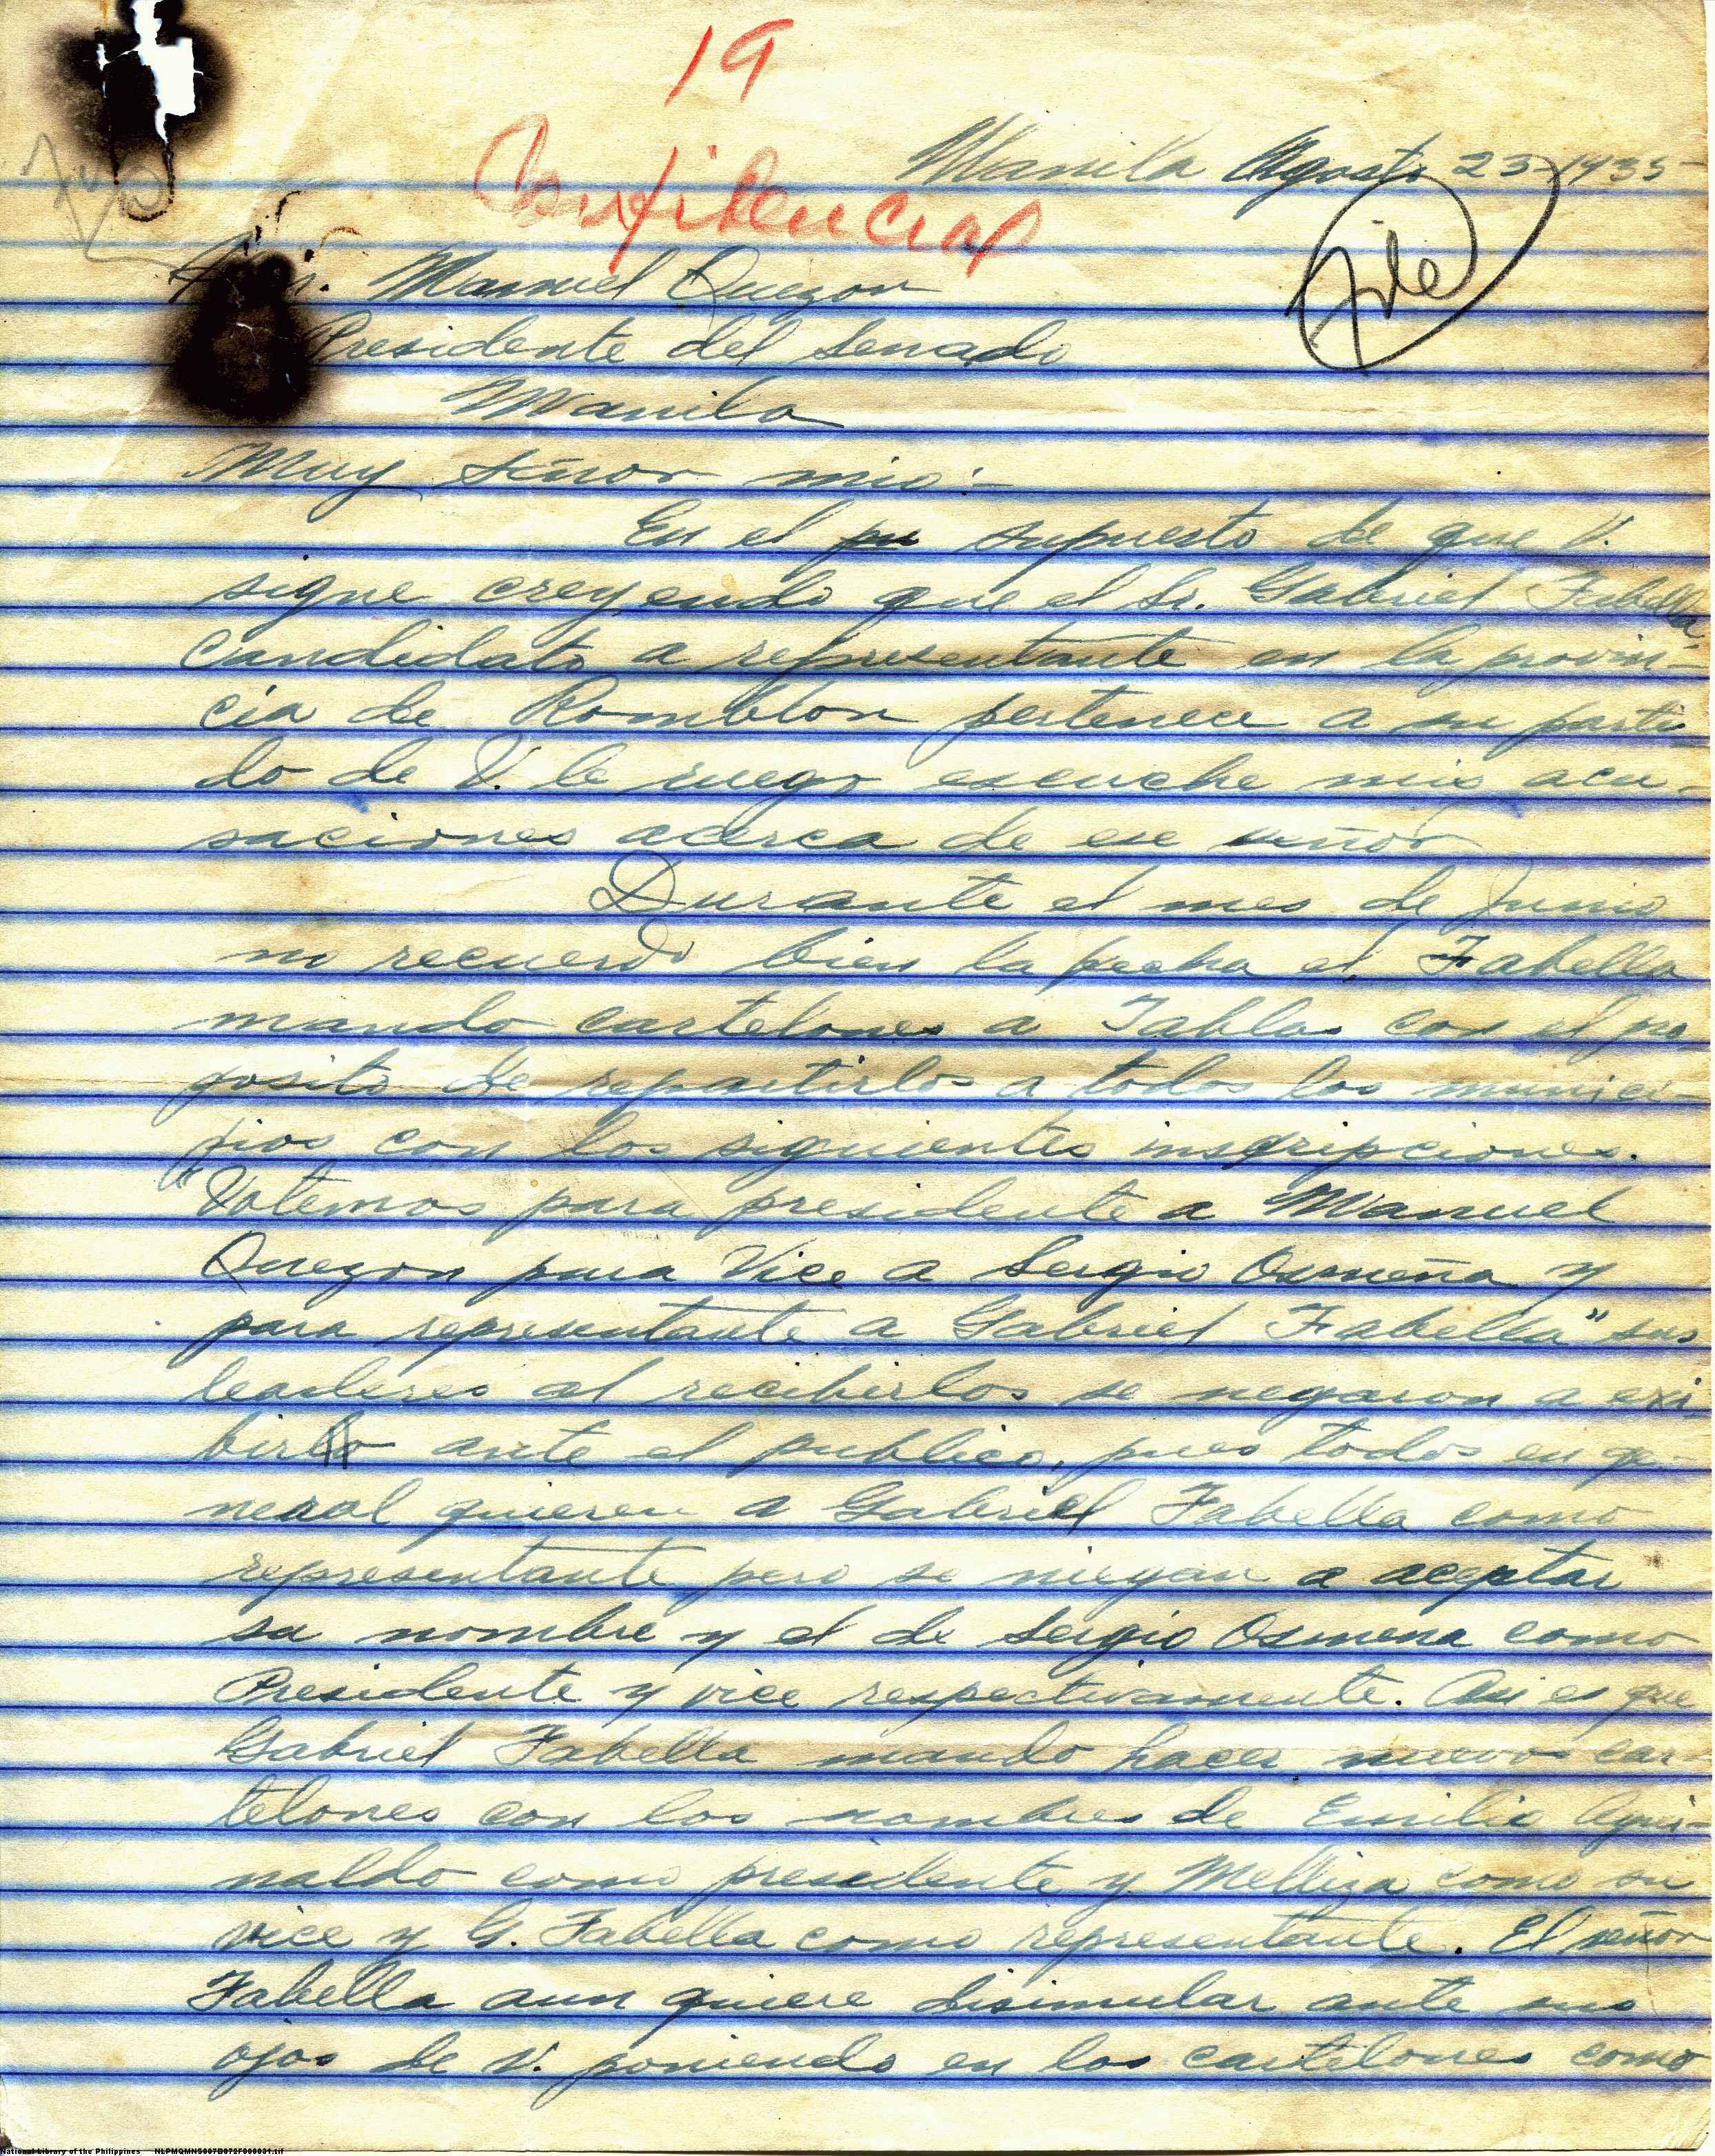 19
Confidencial
Manila Agosto 23-1935
File
Manuel Quezon
Presidente del Senado
Manila
Muy señor mio:-
En el pu supuesto de que V.
sigue creyendo que el Sr. Gabriel Fabella
candidato a representante en la provin-
cia de Romblon pertenece a su parti
do de V. le ruego escuche mis acu-
saciones acerca de ese señor
Durante el mes de Junio
no recuerdo bien la fecha el Fabella
mando cartelones a Tablas con el pro
posito de repartirlos a todos los munici-
pios con los siguientes inscripciones.
"Votemos para presidente a Manuel
Quezon para Vice a Sergio Osmeña y
para representante a Gabriel Fabella" sus
leaderes al recibirlos se negaron a exi-
birlo ante el publico, pues todos en ge-
neral quieren a Gabriel Fabella como
representante pero se niegan a aceptar
su nombre y el de Sergio Osmena como
Presidente y vice respectivamente. Asi es que
Gabriel Fabella mando hacer nuevos car-
telones con los nombres de Emilio Agui-
naldo como presidente y Melliza como su
vice y G. Fabella como representante. El señor
Fabella aun quiere disimular ante sus
ojos de V. poniendo en los cartelones como
National Library of the Philippines NLPMQMNS007B072F000031.tif